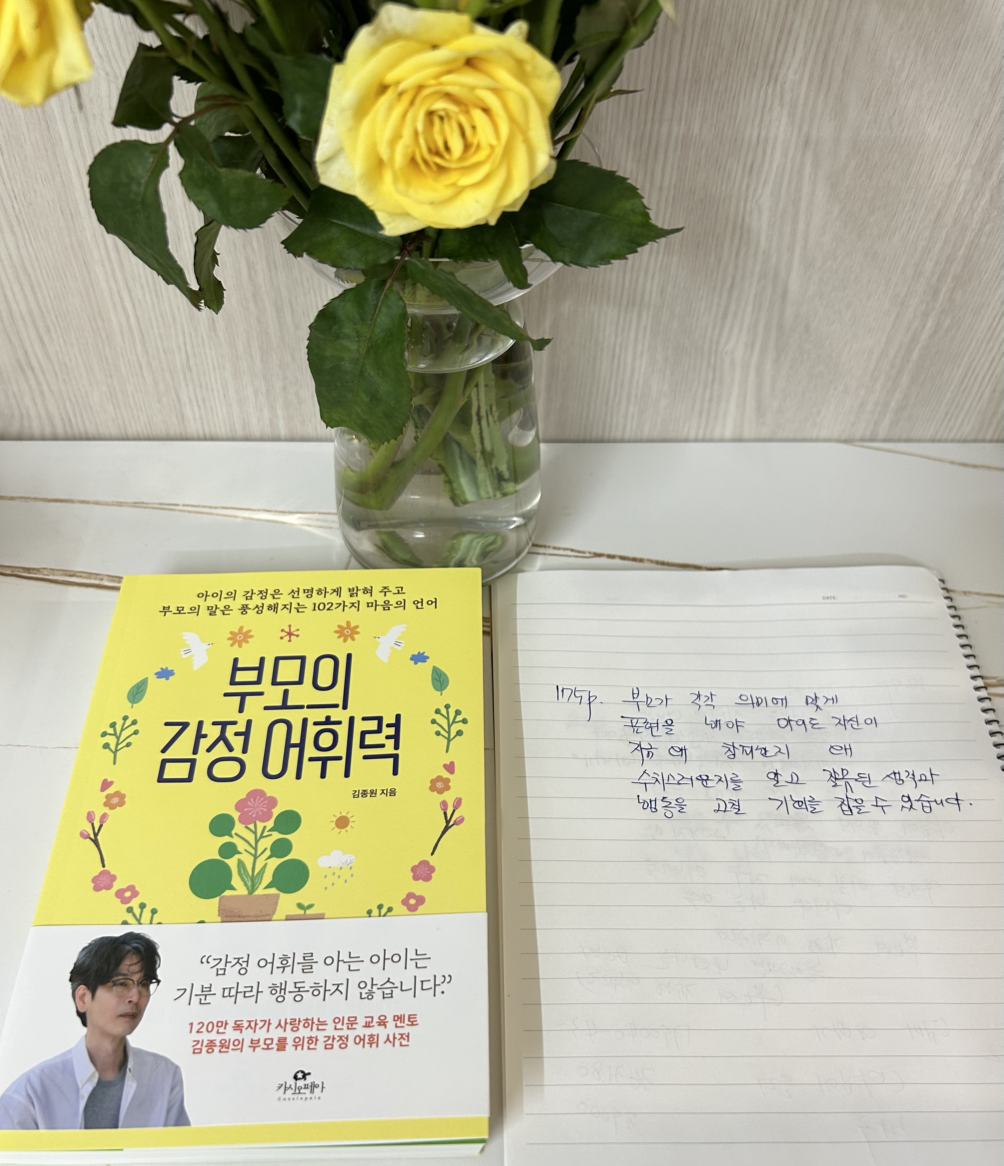 아이의 감정은 선명하게 밝혀 주고
부모의 말은 풍성해지는 102가지 마음의 언어
부모의
감정 어휘력
김종원 지음
“감정 어휘를 아는 아이는
기분 따라 행동하지 않습니다.”
120만 독자가 사랑하는 인문 교육 멘토
김종원의 부모를 위한 감정 어휘 사전
카시오페아
Cassiopeia
DATE. NO.
175p. 부모가 각각 의미에 맞게
표현을 해야 아이도 자신이
지금 왜 창피한지 왜
수치스러운지를 알고 잘못된 생각과
행동을 고칠 기회를 잡을 수 있습니다.